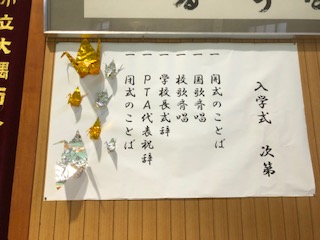 入学式 次第
一 開式のことば
一 国歌斉唱
一 校歌斉唱
一 学校長式辞
一 PTA代表祝辞
一 閉式のことば